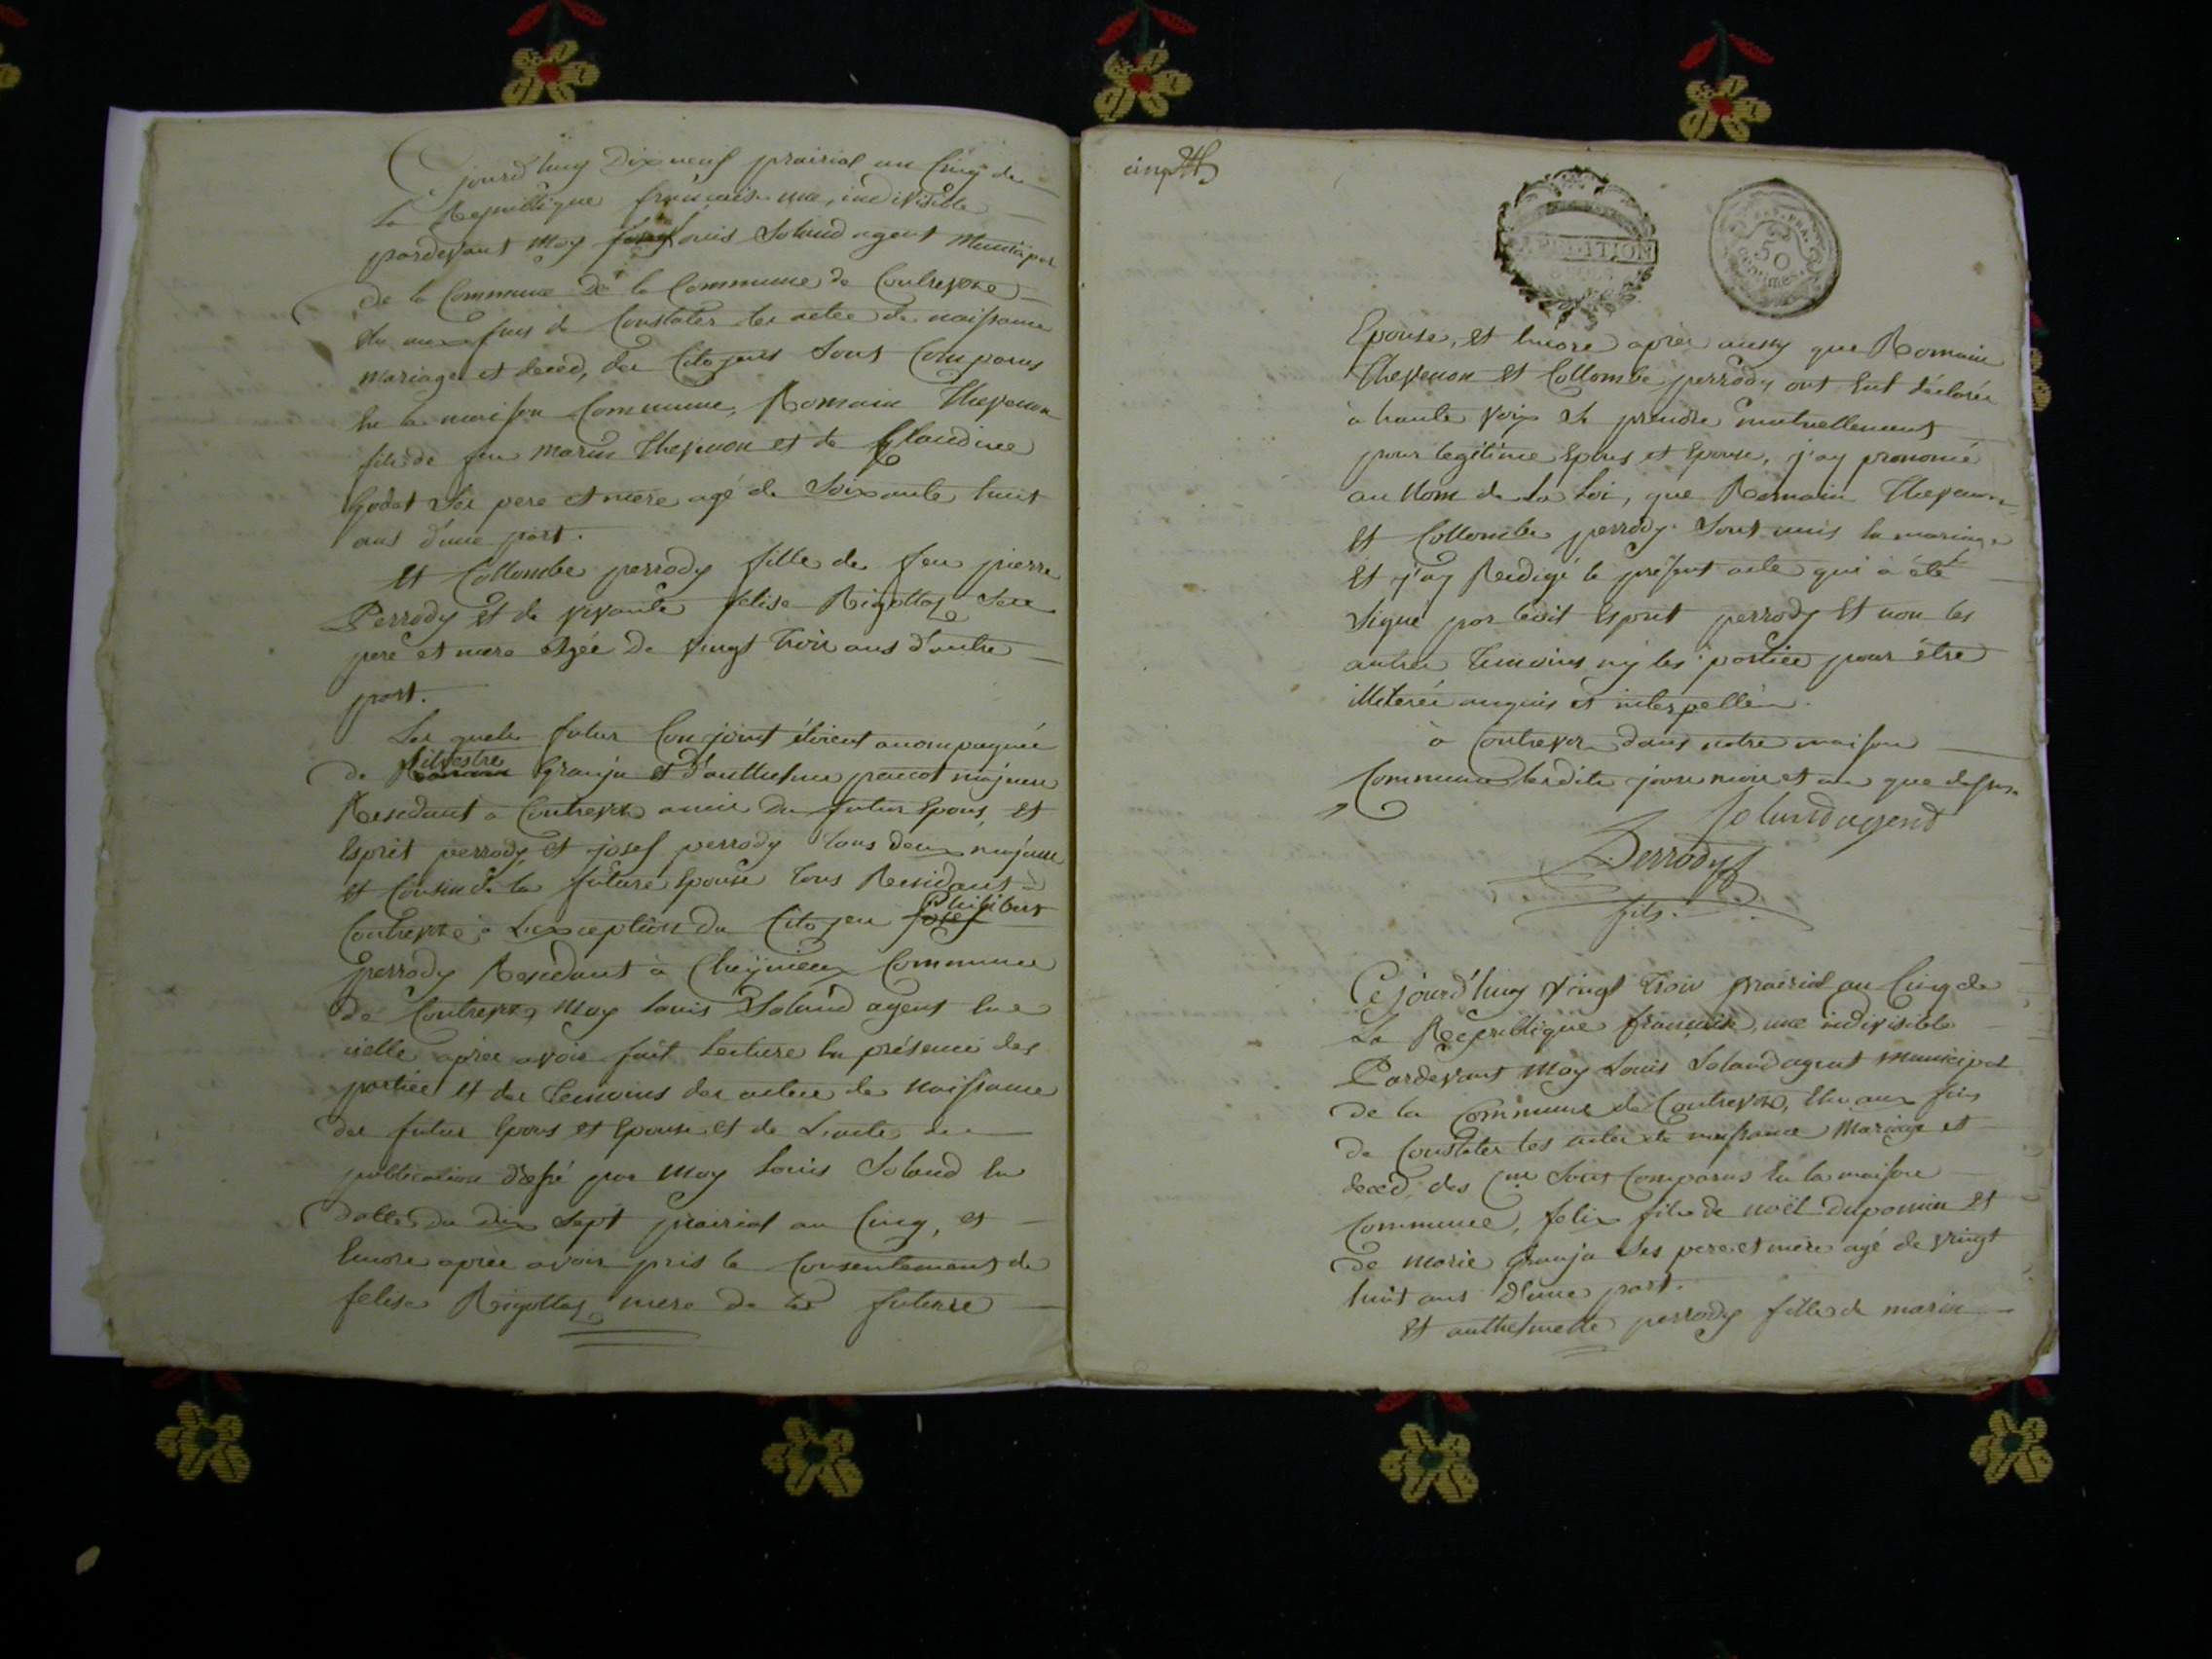 Cejourd'huy Dix neuf prairial an Cinq de
la Republique francaise une, indivisible
pardevant Moy Louis Soland agent Municipal
de la Commune De la Commune de Contrevoz
Elu aux fins de Constater les actes de naissance
mariage et deced, des Citoyens Sont Comparus
En la maison Commune, Romain Thevenon
fils de feu Marin Thevenon et de Claudine
Godet Ses pere et mere agé de Soixante huit
ans d'une part.
Et Collombe perrody fille de feu pierre
Perrody et de vivante felise Rigottaz Ses
pere et mere Agée De Vingt Trois ans d'autre
part.
Les quels futur Conjoint étoient accompagnés
de Silvestre Granju et d'anthelme majeurs
Residant a Contrevoz amis du futur Epous, et
Esprit perrody et josef perrody tous deux majeurs
et Cousin de la future Epouse tous Residant à
Contrevoz à L'exception du Citoyen Philibert
perrody Residant à Cheÿnieux Commune
de Contrevoz, Moy Louis Soland agent
apres avoir fait Lecture En présence des
parties et des Temoins des actes de Naissance
des futur Epous et Epouse et de L'acte de
publication par Moy Louis Soland En
datte du dix Sept prairial an Cinq, et
Encore après avoir pris le Consentement de
felise Rigottaz mere de la future
cinq
50
Epouse, et Encore après aussy que Romain
Thevenon et Collombe perrody ont Eut déclarés
à haute voix Se prendre mutuellement
pour legitime Epous et Epouse, j'ay prononcé
au Nom de La Loi, que Romain Thevenon
Et Collombe perrody Sont unis En mariage
Et j'ay Redigé le présent acte qui à été
Signé par ledit Esprit perrody Et non les
autres Temoins ny les parties pour être
illiterés enquis et interpellés.
à Contrevoz dans notre maison
Commune lesdits jour mois et an que dessus
Solandagend
Perrody
fils.
Cejourd'huy Vingt Trois prairial an Cinq de
La Republique française, une indivisible
Pardevant Moy Louis Soland agent municipal
de la Commune de Contrevoz, Elu aux fins
de Constater les actes de naissance Mariage et
deced, des Cens Sont Comparus En la maison
Commune, felix fils de noël duponin Et
de Marie Granju Ses pere et mere agé de vingt
huit ans d'une part.
Et anthelmette perrody fille de marin